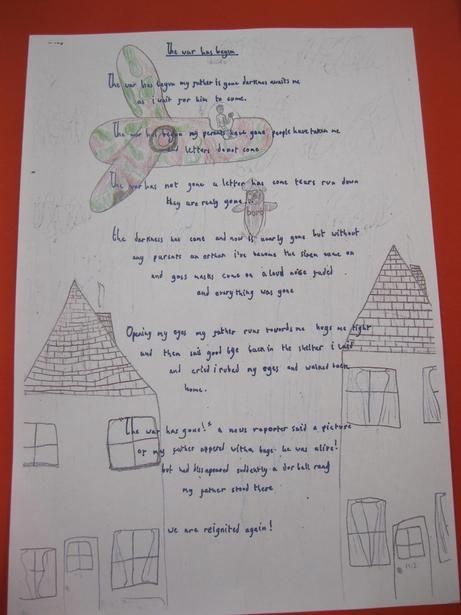 The war has begun
The war has begun my father is gone darkness awaits me
as i wait for him to come.
The war has begun my parents have gone people have taken me
letters do not come
The war has not gone a letter has come tears run down
they are realy gone...
bord
the darkness has come and now is nearly gone but without
any parents an orthan i've become the siren came on
and gass masks came on a loud noise faded
and everything was gone
Opening my eyes my father runs towards me hugs me tight
and then sais good bye back in the shelter i
and cried i rubed my eyes and walked back
home.
"The war has gone!" a news reporter said a picture
of my father appered with a bage he was alive!
but had dissapeared suddenly a dor bell rang
my father stood there
we are reignited again!